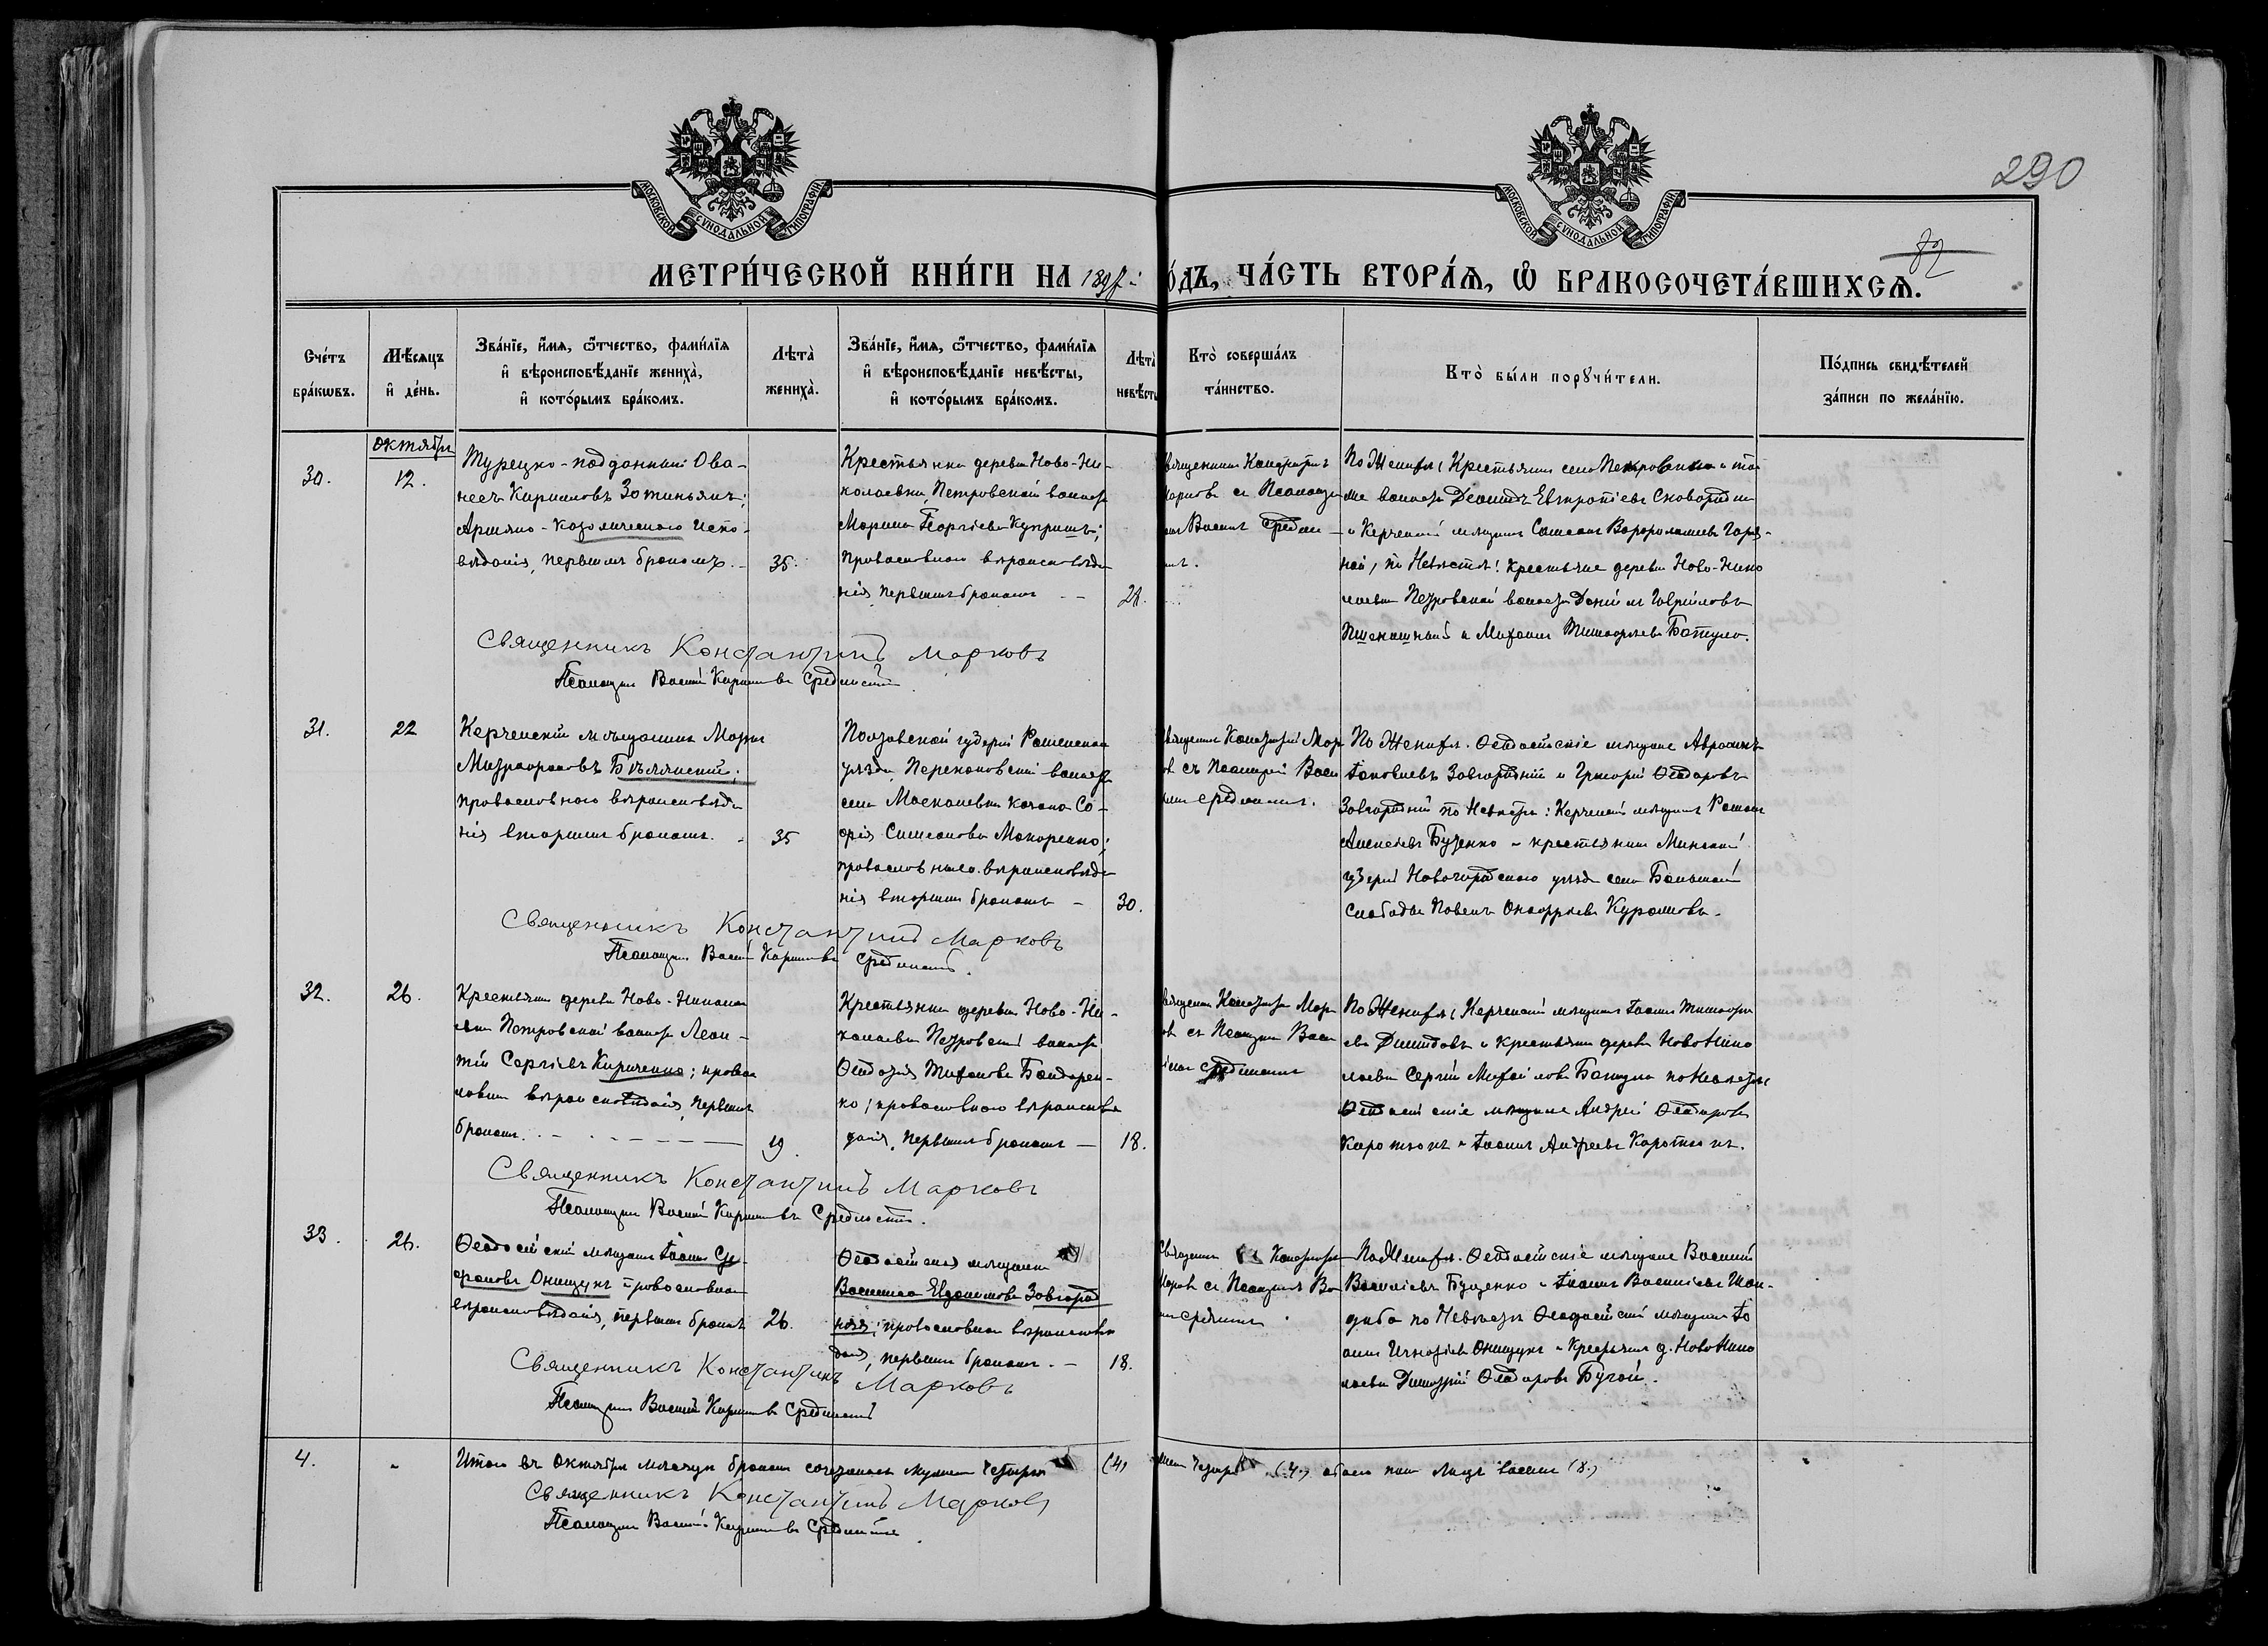 290
82
МОСКОВСКОЙ СѴНОДАЛЬНОЙ ТИПОГРАФІИ
МОСКОВСКОЙ СѴНОДАЛЬНОЙ ТИПОГРАФІИ
МЕТРИ́ЧЕСКОЙ КНИ́ГИ НА 189 О́ДЪ, ЧА́СТЬ ВТОРА́Ѧ, Ѽ БРАКОСОЧЕТА́ВШИХСѦ.
Сче́тъ бра́кѡвъ.
Мѣ́сяцъ и҆ де́нь.
Зва́нїе, и҆́мѧ, ѻ҆́тчество, фами́лїѧ и҆ вѣроисповѣ́данїе жениха̀, и҆ кото́рымъ бра́комъ.
Лѣта̀ жениха̀.
Зва́нїе, и҆́мѧ, ѻ҆́тчество, фами́лїѧ и҆ вѣроисповѣ́данїе невѣ́сты, и҆ кото́рымъ бра́комъ.
Лѣта̀ невѣ́сты
Кто̀ соверша́лъ та́инство.
Кто̀ бы́ли порꙋчи́тели.
По́дпись свидѣ́телей за́писи по жела́нїю.
октября
30.
12.
Турецко-подданный Ова-
несъ Кириловъ Зотиньянъ;
Армяно-Католическаго испо-
вѣданія, первымъ бракомъ.
35.
Крестьянка деревни Ново-Ни-
колаевки, Петровской волости
Марина Георгіева Купришъ;
православнаго вѣроисповѣда
нія первымъ бракомъ
28.
Священникъ
Марковъ съ Псаломщ
По Женихѣ: Крестьянинъ села Петровска и той
же волости Леонидъ Евтропіевъ Сковородин
и Керченскій мѣщанинъ
ной, по Невѣстѣ: Крестьяне деревни Ново-Нико
лаевки Петровской волости Данiилъ Гавриловъ
Пшеничный и Михаилъ Тимофеевъ Батула.
Священникъ Константинъ Марковъ
Псаломщикъ Василій Кириловъ Срединскій
31.
22
Керченскій мѣщанинъ Маркъ
Митрофановъ Бѣлянскій;
православнаго вѣроисповѣда
нія вторымъ бракомъ.
35
Полтавской губерніи Роменскаго
уѣзда, Перекоповской волости
села казачка Со-
фія Симеонова Макаренко;
православнаго вѣроисповѣда
нія вторымъ бракомъ
30.
Священникъ Константинъ Мар
овъ съ Псаломщ Васи
По Женихѣ. Ѳеодосійскіе мѣщане Авраамъ
Іаковлевъ Завгородній и Григорій Ѳеодоровъ
Завгородній по Невѣстѣ: Керченскій мѣщанинъ Романъ
Алексѣевъ Бузенко и крестьянинъ Минской
губерніи Новогрудскаго уѣзда села Большой
Слободы Павелъ Онуфріевъ
Священникъ Константинъ Марковъ
Псаломщ. Василій Кириловъ Срединскій.
32.
26.
Крестьянинъ деревни Ново-Никола
евки Петровской волости Леон-
тій Сергіевъ Кириченко; правос
лавнаго вѣроисповѣданія, первымъ
бракомъ.
19.
Крестьянка деревни Ново-Ни-
колаевки Петровской волости
Ѳеодосія Тихонова Бондарен-
ко; православнаго вѣроисповѣ
данія, первымъ бракомъ
18.
Священникъ Константинъ Марк
овъ съ Псаломщ Васи
По Женихѣ: Керченскій мѣщанинъ Іоаннъ Тимофе
евъ Демидовъ и крестьянинъ деревни Ново Нико
лаевки Сергій Михайловъ Батула по Невѣстѣ:
Ѳеодосійскіе мѣщане Андрей Ѳеодоровъ
Коротюкъ и Іоаннъ Андреевъ Коротюкъ.
Священникъ Константинъ Марковъ
Псаломщикъ Василій Кириловъ Срединскій.
33.
26.
Ѳеодосійскій мѣщанинъ Іоаннъ Се-
рапіоновъ Онищукъ православнаго
вѣроисповѣданія, первымъ бракомъ
26.
Ѳеодосійская мѣщанка
Василиса Евдокимова Завгород
няя; православнаго вѣроисповѣ
данія, первымъ бракомъ.
18.
Священникъ Константинъ
Марков съ Псаломщ Ва
По Женихѣ. Ѳеодосійскіе мѣщане Василій
Василіевъ Буценко и Іоаннъ Василіевъ Шан-
дыба по Невѣстѣ Ѳеодосійскій мѣщанинъ Іо
аннъ Игнатіевъ Онищукъ и Крестьянинъ д. Ново Нико
лаевки Димитрій Ѳеодоровъ Бугай.
Священникъ Константинъ Марковъ
Псаломщикъ Василій Кириловъ Срединскій
4.
Итого въ Октябрѣ мѣсяцѣ бракомъ сочеталось мужчинъ четыре (4)
четыре (4) обоего пола лицъ восемь (8.)
Священникъ Константинъ Марковъ
Псаломщикъ Василій Кириловъ Срединскій.